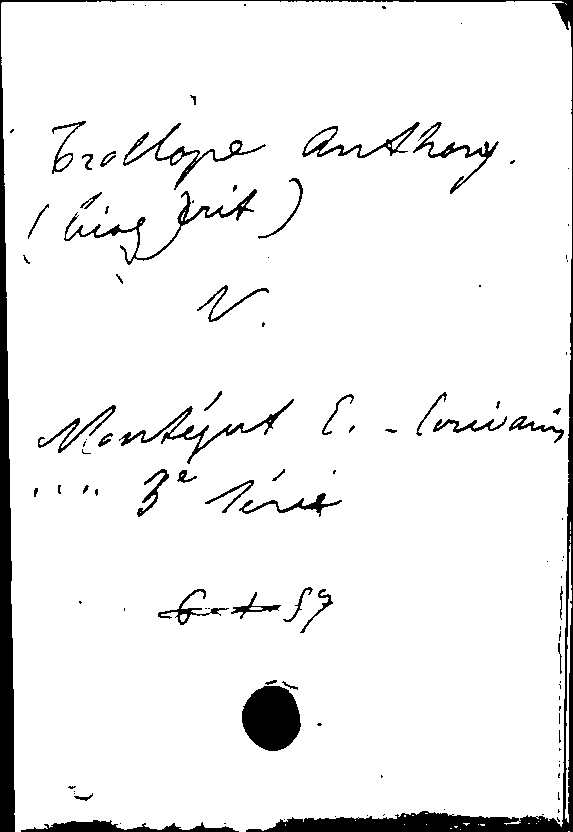 Trollope Anthony.
(biog crit)
V.
Montégut E. - Écrivains
.... 3e série